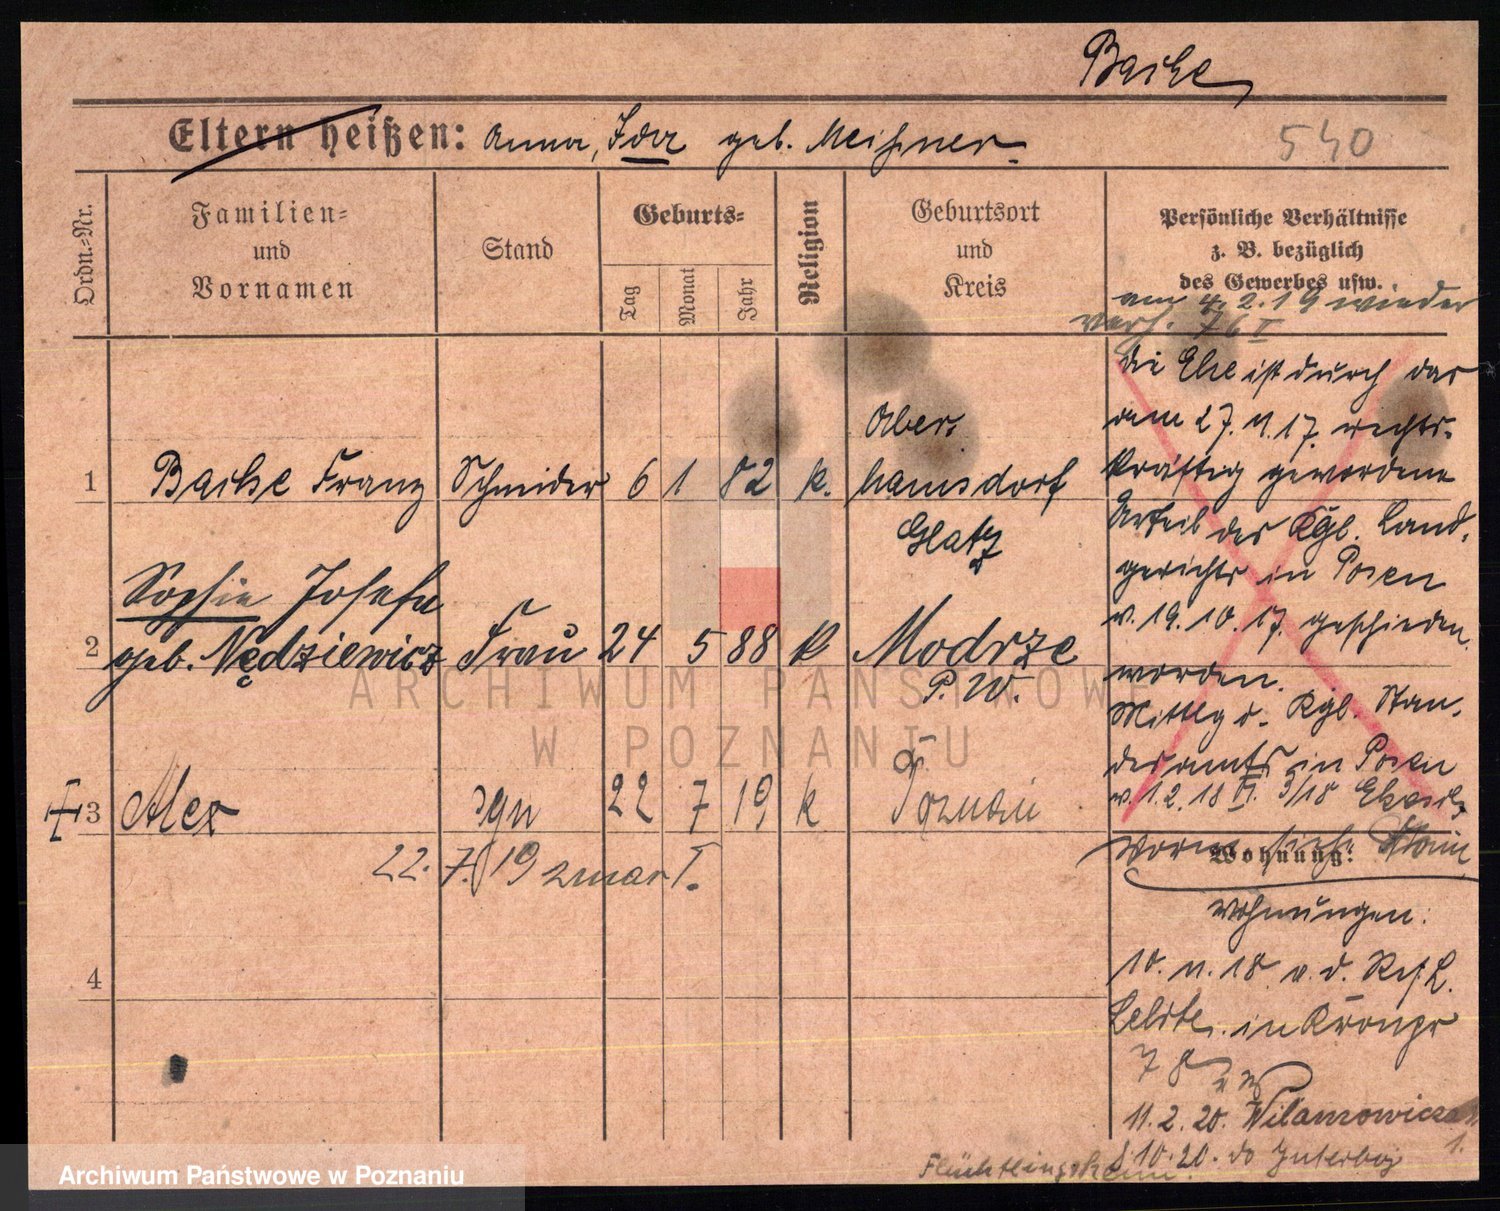 Baike
Eltern heißen: Anna, Ida geb. Meißner
540
Ordn.=Nr.
Familien=
und
Vornamen
Stand
Geburts=
Tag
Monat
Jahr
Religion
Geburtsort
und
Kreis
Persönliche Verhältnisse
z. B. bezüglich
des Gewerbes usw.
am 4. 2. 19 wieder
verh. 76 I
1
Baike Franz
Schneider
6
1
82
k.
Ober-
hannsdorf
Glatz
2
Sophie Josefa
geb. Nędziewicz
Frau
24
5
88
k
Modrze
P. W.
3
Alex
22
7
19
k
Poznań
22. 7. 19 zmarł.
4
die Ehe ist durch das
am 27. 11. 17. rechts-
kräftig gewordene
Urteil des Kgl. Land-
gerichts in Posen
v. 19. 10. 17. geschieden
worden.
Mittlg d. Kgl. Stan-
desamts in Posen
v. 1. 2. 18
Wohnung:
Wohnungen:
10. 11. 18 v. d.
in
78
11. 2. 20.
10. 20. do Juterbog
Flüchtlingsheim.
ARCHIWUM PAŃSTWOWE
W POZNANIU
Archiwum Państwowe w Poznaniu